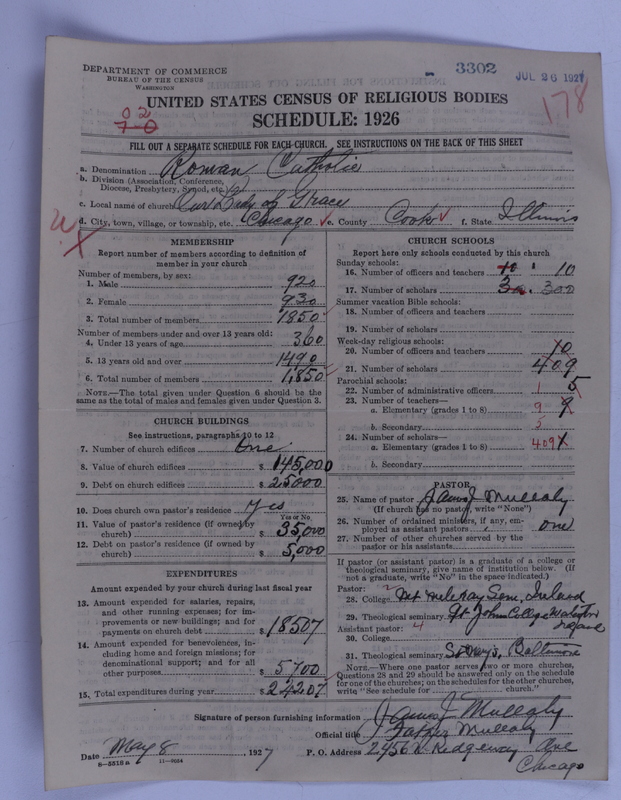 DEPARTMENT OF COMMERCE
BUREAU OF THE CENSUS
WASHINGTON
3302
JUL 26 1927
178
0 2
7-0
UNITED STATES CENSUS OF RELIGIOUS BODIES
SCHEDULE: 1926
FILL OUT A SEPARATE SCHEDULE FOR EACH CHURCH. SEE INSTRUCTIONS ON THE BACK OF THIS SHEET
a. Denomination Roman Catholic
b. Division (Association, Conference,
Diocese, Presbytery, Synod, etc.)
c. Local name of church Our Lady of Grace
d. City, town, village, or township, etc. Chicago e. County Cook f. State Illinois
MEMBERSHIP
Report number of members according to definition of
member in your church
Number of members, by sex:
1. Male 920
2. Female 930
3. Total number of members 1850
Number of members under and over 13 years old:
4. Under 13 years of age 360
5. 13 years old and over 1490
6. Total number of members 1,850
NOTE.—The total given under Question 6 should be the
same as the total of males and females given under Question 3.
CHURCH BUILDINGS
See instructions, paragraphs 10 to 12
7. Number of church edifices One
8. Value of church edifices $ 145,000
9. Debt on church edifices $ 25000
10. Does church own pastor's residence Yes
Yes or No.
11. Value of pastor's residence (if owned by
church) $ 35,000
12. Debt on pastor's residence (if owned by
church) $ 5,000
EXPENDITURES
Amount expended by your church during last fiscal year
13. Amount expended for salaries, repairs,
and other running expenses; for im-
provements or new buildings; and for
payments on church debt $ 18507
14. Amount expended for benevolences, in-
cluding home and foreign missions; for
denominational support; and for all
other purposes $ 5700
15. Total expenditures during year $ 24207
CHURCH SCHOOLS
Report here only schools conducted by this church
Sunday schools:
16. Number of officers and teachers 10 10
17. Number of scholars 300
Summer vacation Bible schools:
18. Number of officers and teachers
19. Number of scholars
Week-day religious schools:
20. Number of officers and teachers 10
21. Number of scholars 409
Parochial schools:
22. Number of administrative officers 1 5
23. Number of teachers—
a. Elementary (grades 1 to 8) 9 9
b. Secondary 5
24. Number of scholars—
a. Elementary (grades 1 to 8) 409
b. Secondary
PASTOR
25. Name of pastor James J Mullaly
(If church has no pastor, write "None")
26. Number of ordained ministers, if any, em-
ployed as assistant pastors one
27. Number of other churches served by the
pastor or his assistants
If pastor (or assistant pastor) is a graduate of a college or
theological seminary, give name of institution below. (If
not a graduate, write "No" in the space indicated.)
Pastor: 2
28. College Mt Melleray Sem, Ireland
29. Theological seminary St John College Waterford Ireland
Assistant pastor: 4
30. College
31. Theological seminary St Marys, Baltimore
NOTE.—Where one pastor serves two or more churches,
Questions 28 and 29 should be answered only on the schedule
for one of the churches; on the schedules for the other churches,
write "See schedule for church."
Signature of person furnishing information James J Mullaly
Official title Father Mullaly
Date May 8, 1927 P. O. Address 2456 N. Ridgeway Ave
Chicago
8-5518 a 11-9054